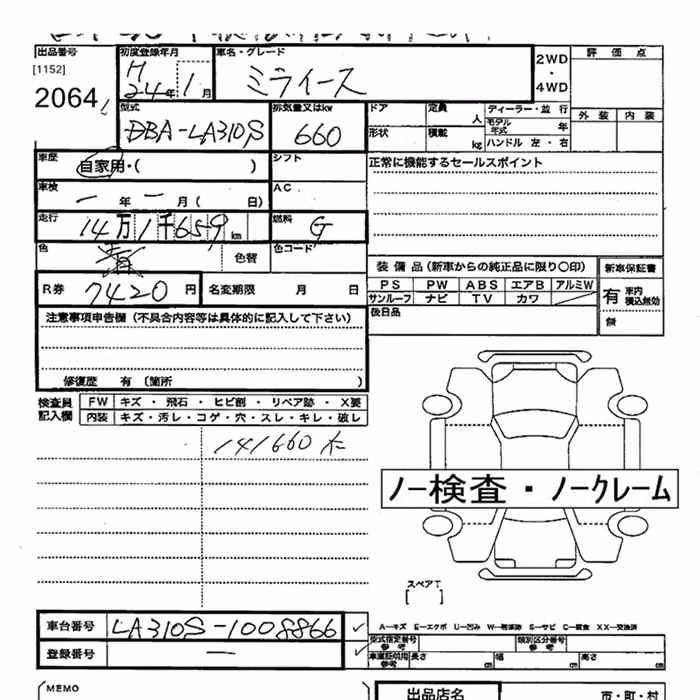 出品番号
[1152]
2064
初度登録年月
H
24年 1月
車名・グレード
ミライース
2WD
・
4WD
評価点
外装 内装
型式
DBA-LA310S
排気量又はkw
660
ドア
定員
人
ディーラー・並行
モデル年式
年
形状
積載
kg
ハンドル 左・右
車歴
自家用・( )
シフト
正常に機能するセールスポイント
車検
ー年ー月( 日)
AC
走行
14万1千659km
燃料
G
色
色替
色コード
R券
7420円
名変期限 月 日
装備品(新車からの純正品に限り〇印)
PS PW ABS エアB アルミW
サンルーフ ナビ TV カワ
新車保証書
有
車内積込無効
無
後日品
注意事項申告欄(不具合内容等は具体的に記入して下さい)
修復歴 有(箇所 )
検査員記入欄
FW キズ・飛石・ヒビ割・リペア跡・X要
内装 キズ・汚レ・コゲ・穴・スレ・キレ・破レ
141660
ノー検査・ノークレーム
スペアT
[ ]
車台番号
LA310S-1008866
登録番号
ー
A-キズ E-エクボ U-凹み W-板金跡 S-サビ C-腐食 XX-交換済
型式指定番号
参考
類別区分番号
参考
車庫証明用
参考
長さ cm 幅 cm 高さ cm
MEMO
出品店名
市・町・村